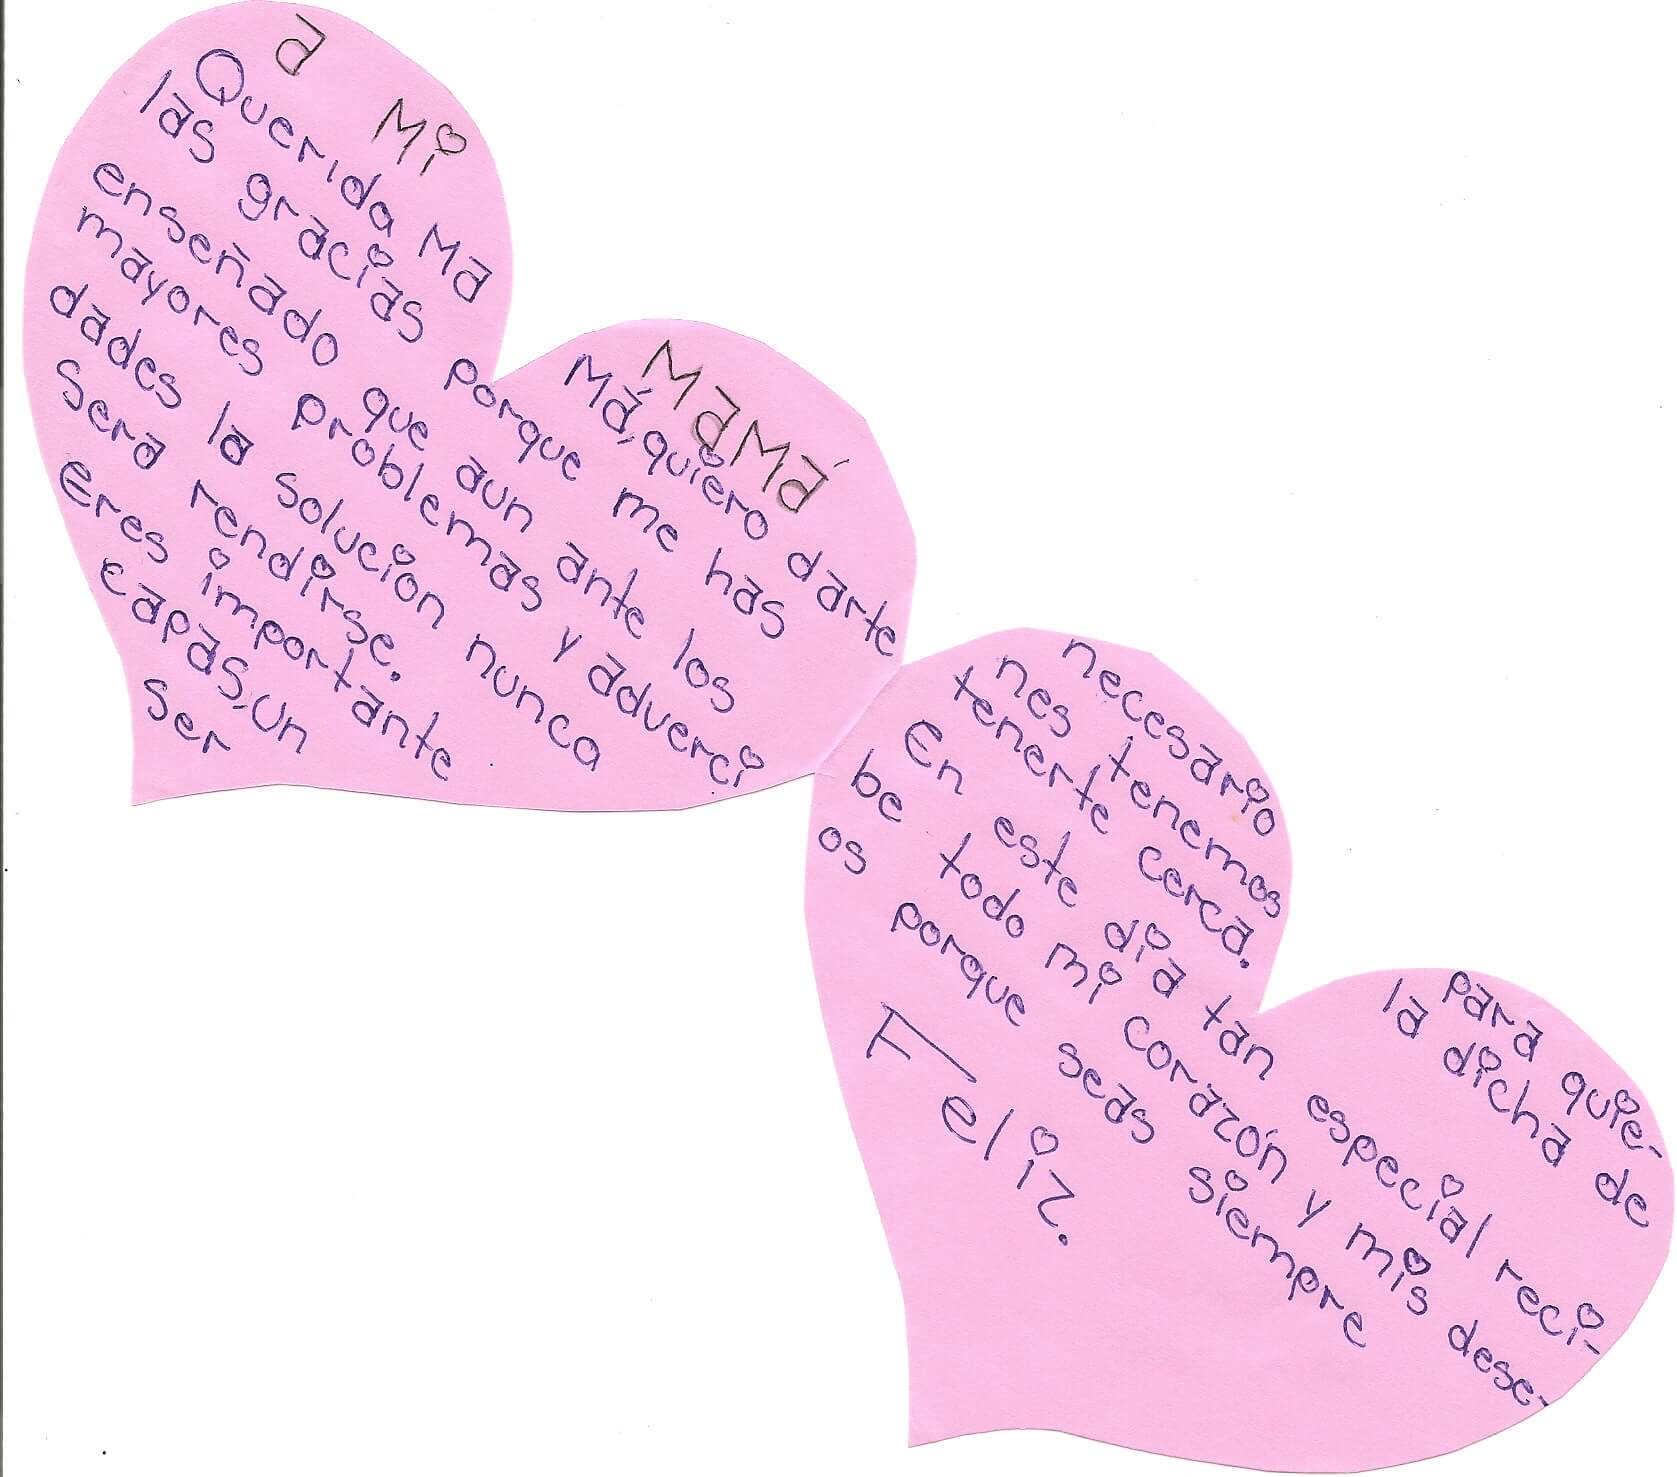 a Mi MaMá
Querida Ma Má, quiero darte
las gracias porque me has
enseñado que aun ante los
mayores problemas y adverci
dades la solucion nunca
sera rendirse.
Eres importante
capas, un
ser
necesario para quie-
nes tenemos la dicha de
tenerte cerca.
En este dia tan especial reci-
be todo mi corazón y mis dese-
os porque seas siempre
Feliz.